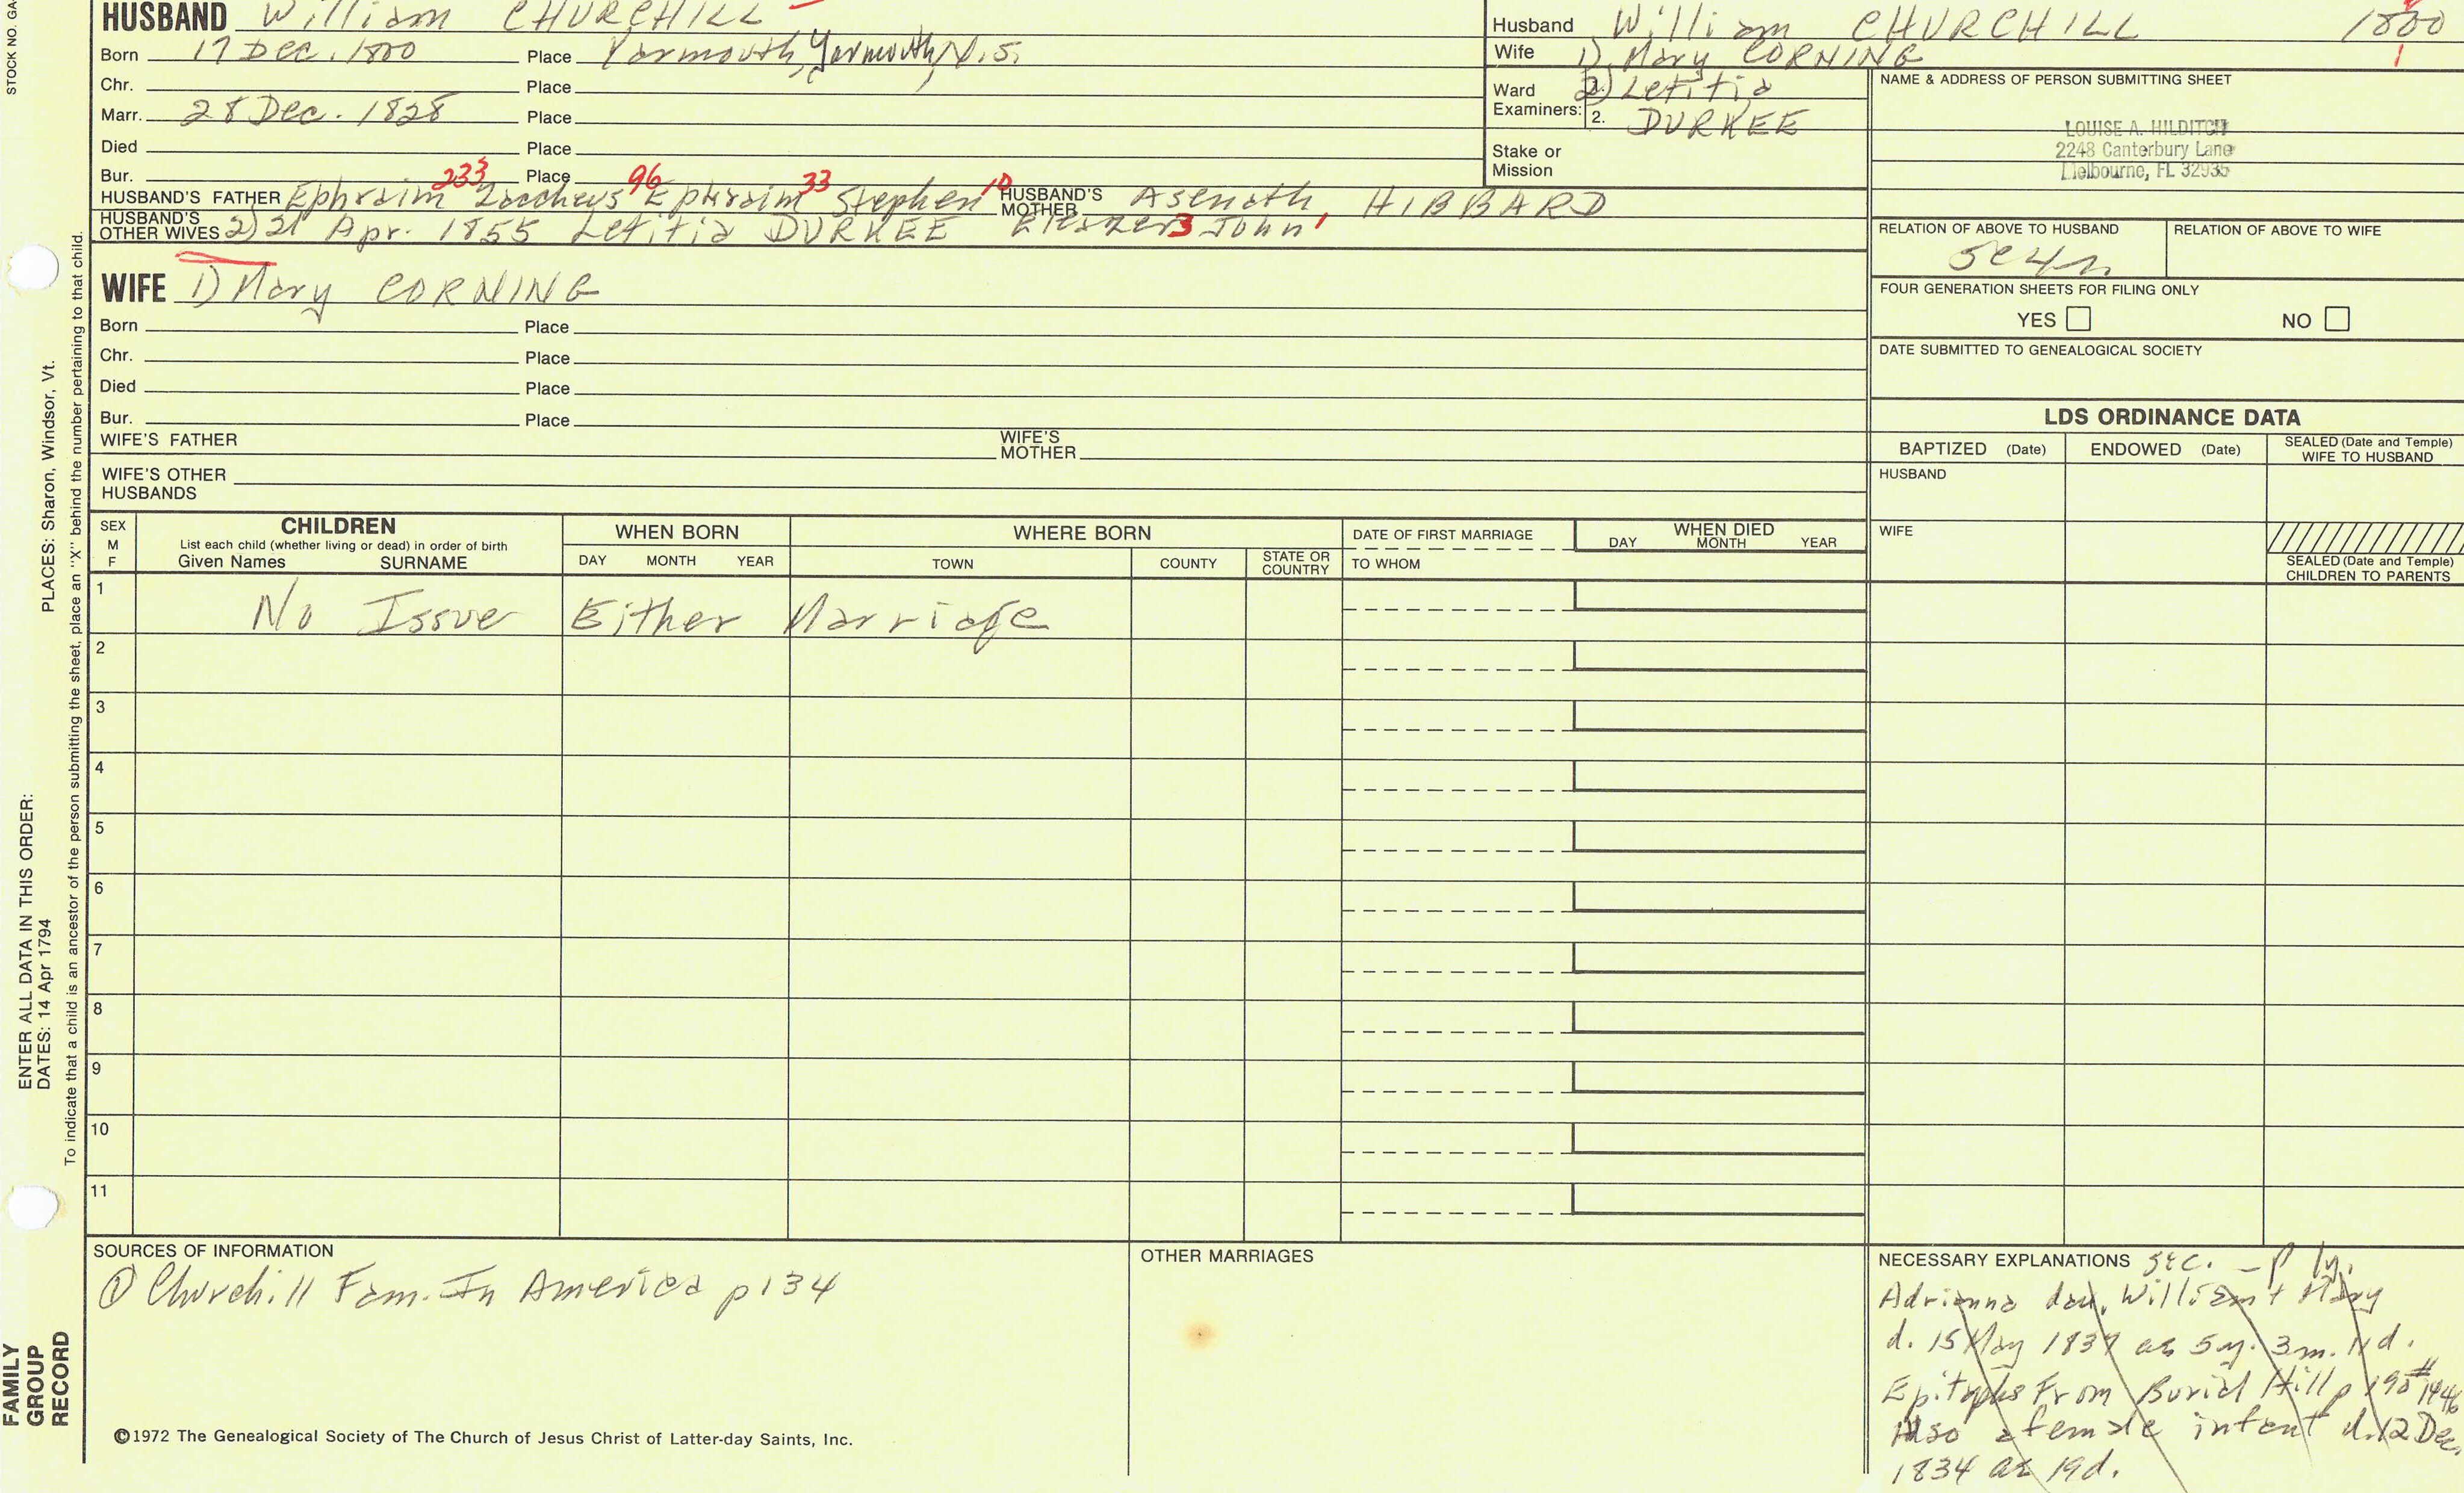 HUSBAND William CHURCHILL
Born 17 Dec. 1800 Place Yarmouth, Yarmouth, N.S.
Chr. Place
Marr. 28 Dec. 1828 Place
Died Place
Bur. Place
HUSBAND'S FATHER Ephraim 233 Zaccheus 96 Ephraim 33 Stephen 10 HUSBAND'S MOTHER Asenath HIBBARD
HUSBAND'S OTHER WIVES 2) 21 Apr. 1855 Letitia DURKEE Eleazer 3 John 1
WIFE 1) Mary CORNING
Born Place
Chr. Place
Died Place
Bur. Place
WIFE'S FATHER WIFE'S MOTHER
WIFE'S OTHER HUSBANDS
Husband William CHURCHILL 1800
Wife 1) Mary CORNING 1
Ward Examiners: 1. 2) Letitia
2. DURKEE
Stake or Mission
NAME & ADDRESS OF PERSON SUBMITTING SHEET
LOUISE A. HILDITCH
2248 Canterbury Lane
Melbourne, FL 32935
RELATION OF ABOVE TO HUSBAND RELATION OF ABOVE TO WIFE
5c4r
FOUR GENERATION SHEETS FOR FILING ONLY
YES NO
DATE SUBMITTED TO GENEALOGICAL SOCIETY
LDS ORDINANCE DATA
BAPTIZED (Date) ENDOWED (Date) SEALED (Date and Temple) WIFE TO HUSBAND
HUSBAND
WIFE
SEALED (Date and Temple) CHILDREN TO PARENTS
SEX M F
CHILDREN
List each child (whether living or dead) in order of birth
Given Names SURNAME
WHEN BORN
DAY MONTH YEAR
WHERE BORN
TOWN COUNTY STATE OR COUNTRY
DATE OF FIRST MARRIAGE
TO WHOM
WHEN DIED
DAY MONTH YEAR
1 No Issue Either Marriage
2
3
4
5
6
7
8
9
10
11
SOURCES OF INFORMATION
① Churchill Fam. In America p 134
©1972 The Genealogical Society of The Church of Jesus Christ of Latter-day Saints, Inc.
OTHER MARRIAGES
NECESSARY EXPLANATIONS
Adrianna dau. William + Mary
d. 15 May 1837 ae 5y. 3m. 11d.
Epitaphs From Burial Hill p 190 #1446
Also a female infant d. 12 Dec.
1834 ae 19d.
STOCK NO. GA
PLACES: Sharon, Windsor, Vt.
ENTER ALL DATA IN THIS ORDER:
DATES: 14 Apr 1794
To indicate that a child is an ancestor of the person submitting the sheet, place an "X" behind the number pertaining to that child.
FAMILY
GROUP
RECORD